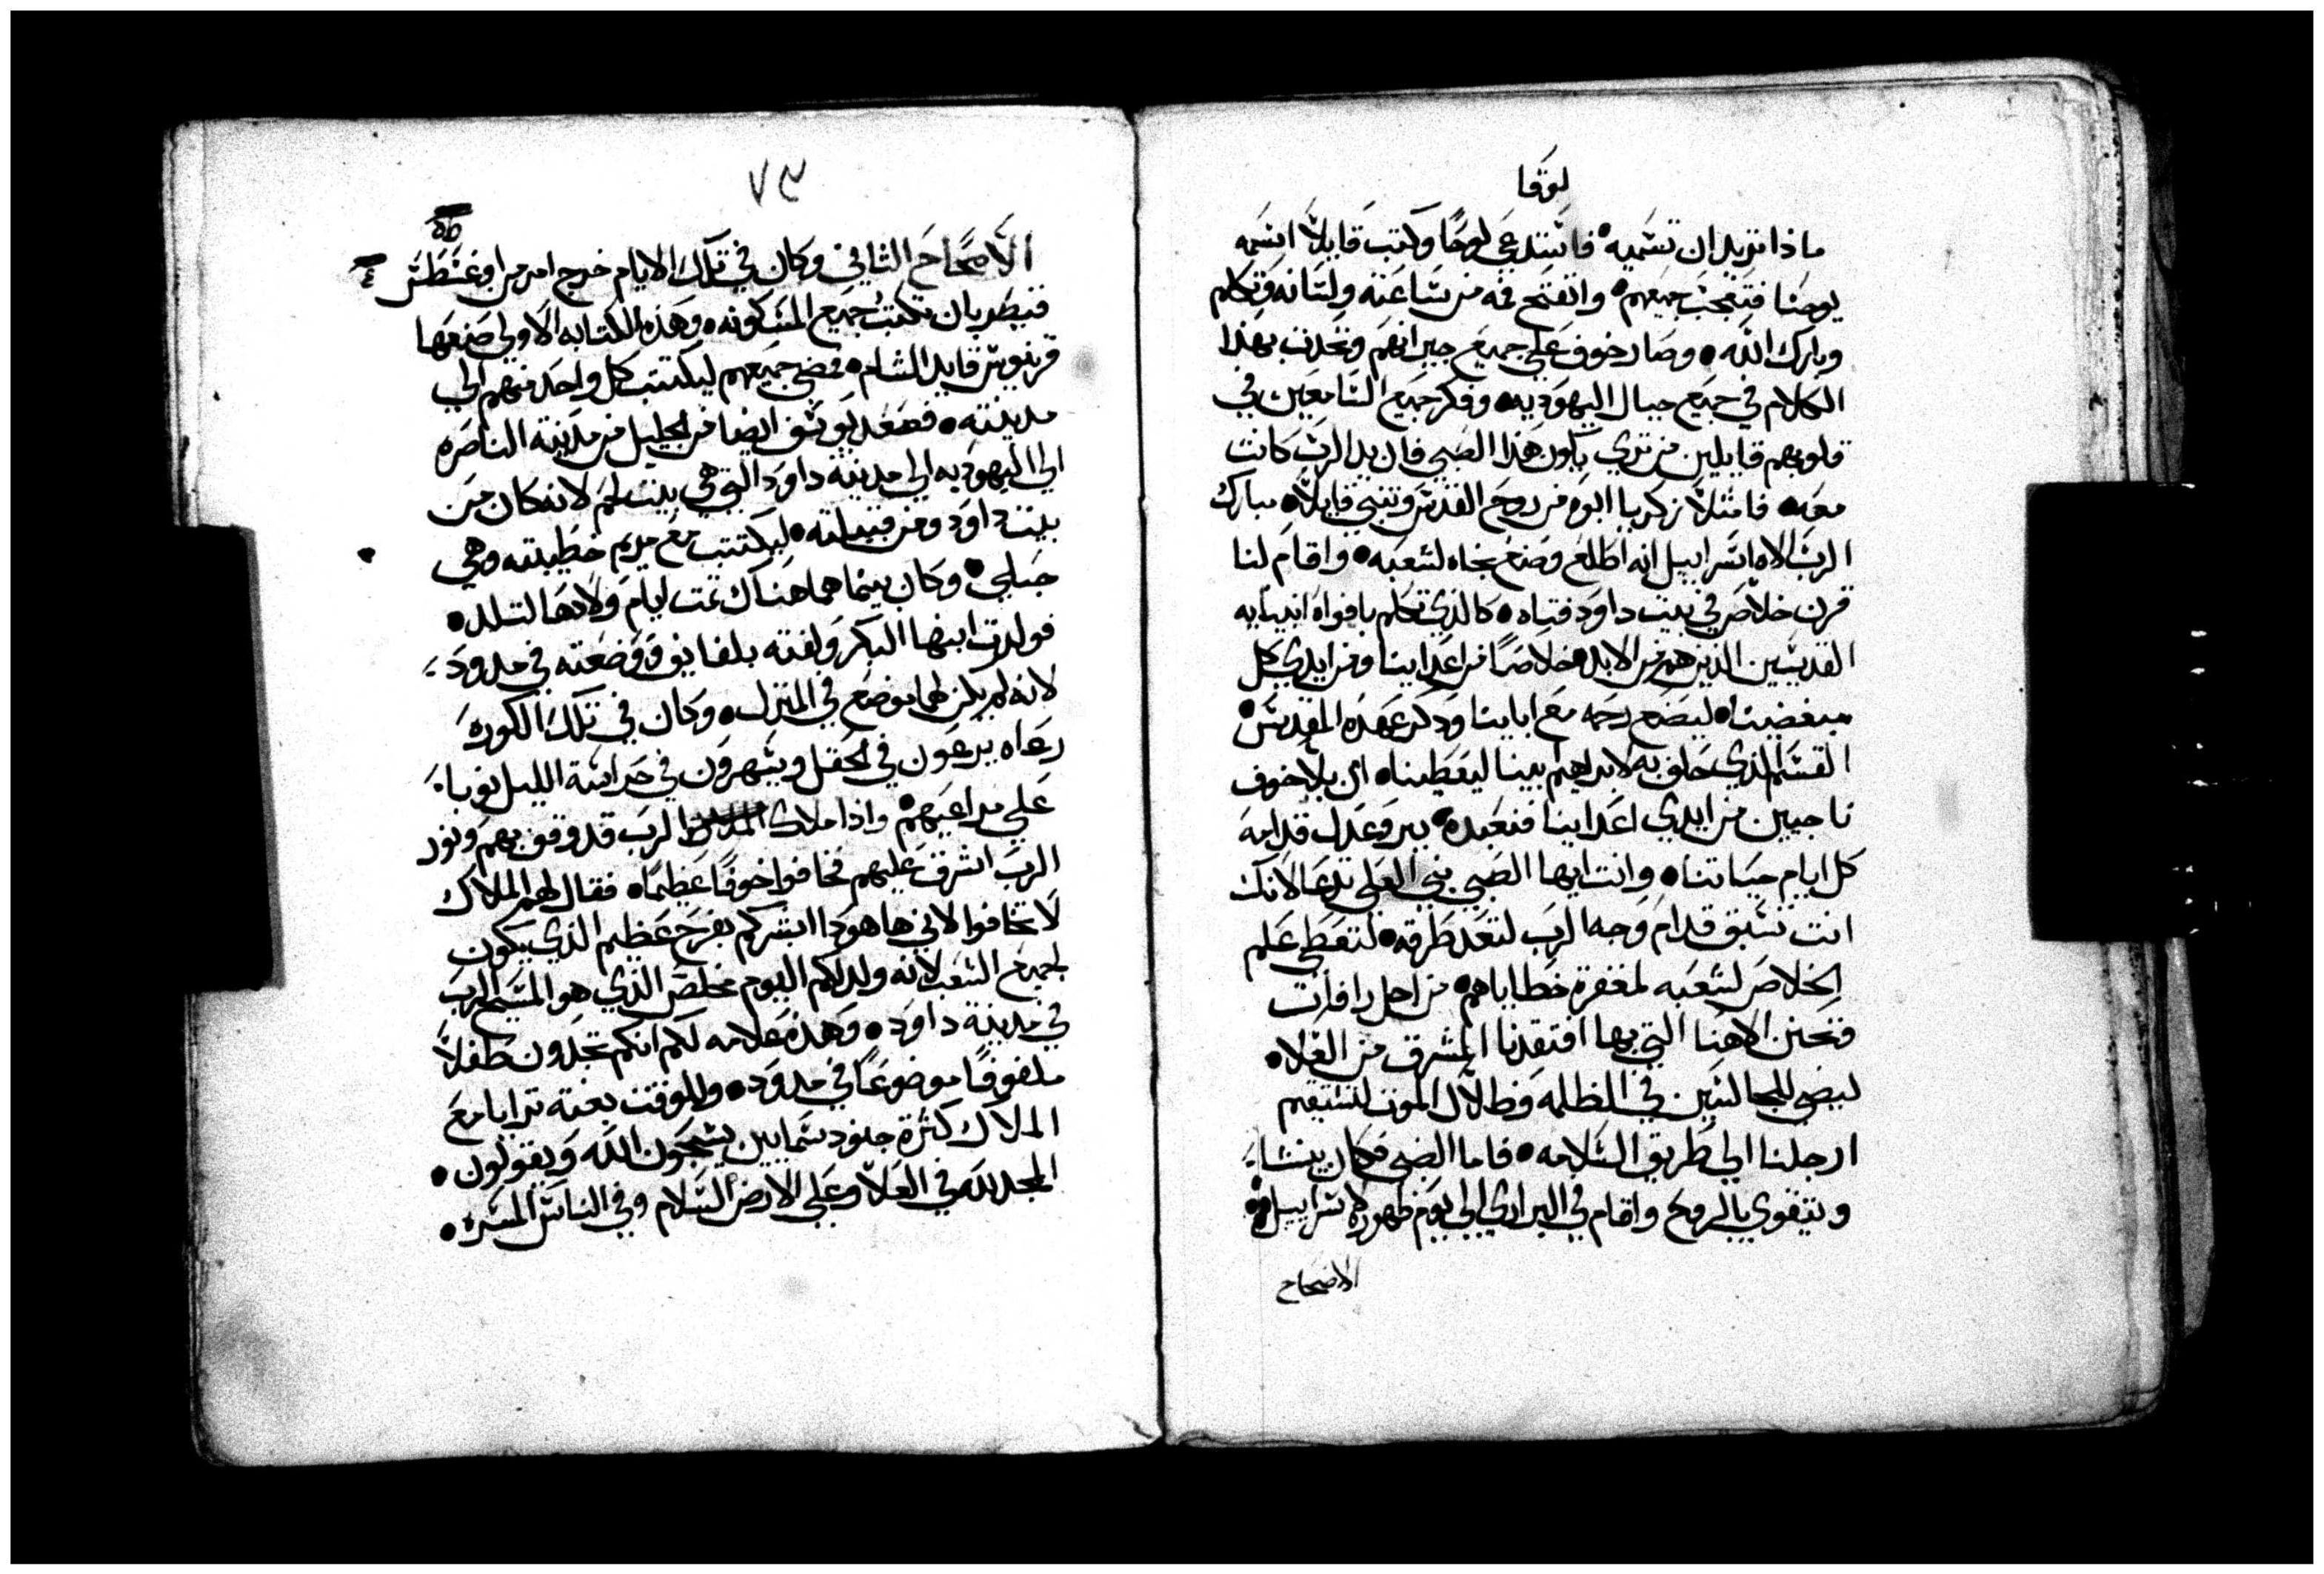 لوقا
ماذا تريد ان تسميه فاستدعي لوحًا وكتب قايلاً اسمه
يوحنا فتعجب جميعهم وانفتح فمه من ساعته ولسانه وتكلم
وبارك الله وصار خوف علي جميع جيرانهم وتحدث بهذا
الكلام في جميع جبال اليهوديه وفكر جميع السامعين في
قلوبهم قايلين من تري يكون هذا الصبي فان يد الرب كانت
معه فامتلا زكريا ابوه من روح القدس وتنبي قايلاً مبارك
الرب الاه اسراييل انه اطلع وصنع نجاه لشعبه واقام لنا
قرن خلاص في بيت داود فتاه كالذي تكلم بافواه انبيايه
القديسين الذين هم من الابد خلاصًا من اعداينا ومن ايدي كل
مبغضينا ليضع رحمه مع اباينا وذكر عهده المقدس
القسم الذي حلف به لابراهيم ابينا ليعطينا ان بلا خوف
ناجيين من ايدي اعداينا فنعبده ببر وعدل قدامه
كل ايام حياتنا وانت ايها الصبي نبي العلي تدعا لانك
انت تسبق قدام وجه الرب لتعد طرقه لتعطي علم
الخلاص لشعبه لمغفرة خطاياهم من اجل رافات
وتحنن الاهنا التي بها افتقدنا المشرق من العلا
ليضي للجالسين في الظلمه وظلال الموت لتستقيم
ارجلنا الي طريق السلامه فاما الصبي فكان ينشا
ويتقوي بالروح واقام في البراري الي يوم ظهوره لاسراييل
الاصحاح
٧٩
الاصحاح الثاني وكان في تلك الايام خرج امر من اوغسطس
قيصر بان تكتب جميع المسكونه وهذه الكتابه الاولي صنعها
قرينوس قايد الشام فمضي جميعهم ليكتتب كل واحد منهم الي
مدينته فصعد يوسف ايضا من الجليل من مدينة الناصره
الي اليهوديه الي مدينة داود التي هي بيت لحم لانه كان من
بيت داود ومن قبيلته ليكتتب مع مريم خطيبته وهي
حبلي وكان بينما هما هناك تمت ايام ولادها لتلد
فولدت ابنها البكر ولفته بلفايف ووضعته في مدود
لانه لم يكن لهما موضع في المنزل وكان في تلك الكورة
رعاه يرعون في الحقل ويسهرون في حراسة الليل نوبا
علي مراعيهم واذا ملاك الرب قد وقف بهم ونور
الرب اشرق عليهم فخافوا خوفًا عظيمًا فقال لهم الملاك
لا تخافوا لاني ها هوذا ابشركم بفرح عظيم الذي يكون
لجميع الشعب لانه ولد لكم اليوم مخلص الذي هو المسيح الرب
في مدينة داود وهذه علامه لكم انكم تجدون طفلاً
ملفوفًا موضوعًا في مدود وللوقت بغتة ترايا مع
الملاك كثرة جنود سماييين يسبحون الله ويقولون
المجد لله في العلا وعلي الارض السلام وفي الناس المسره